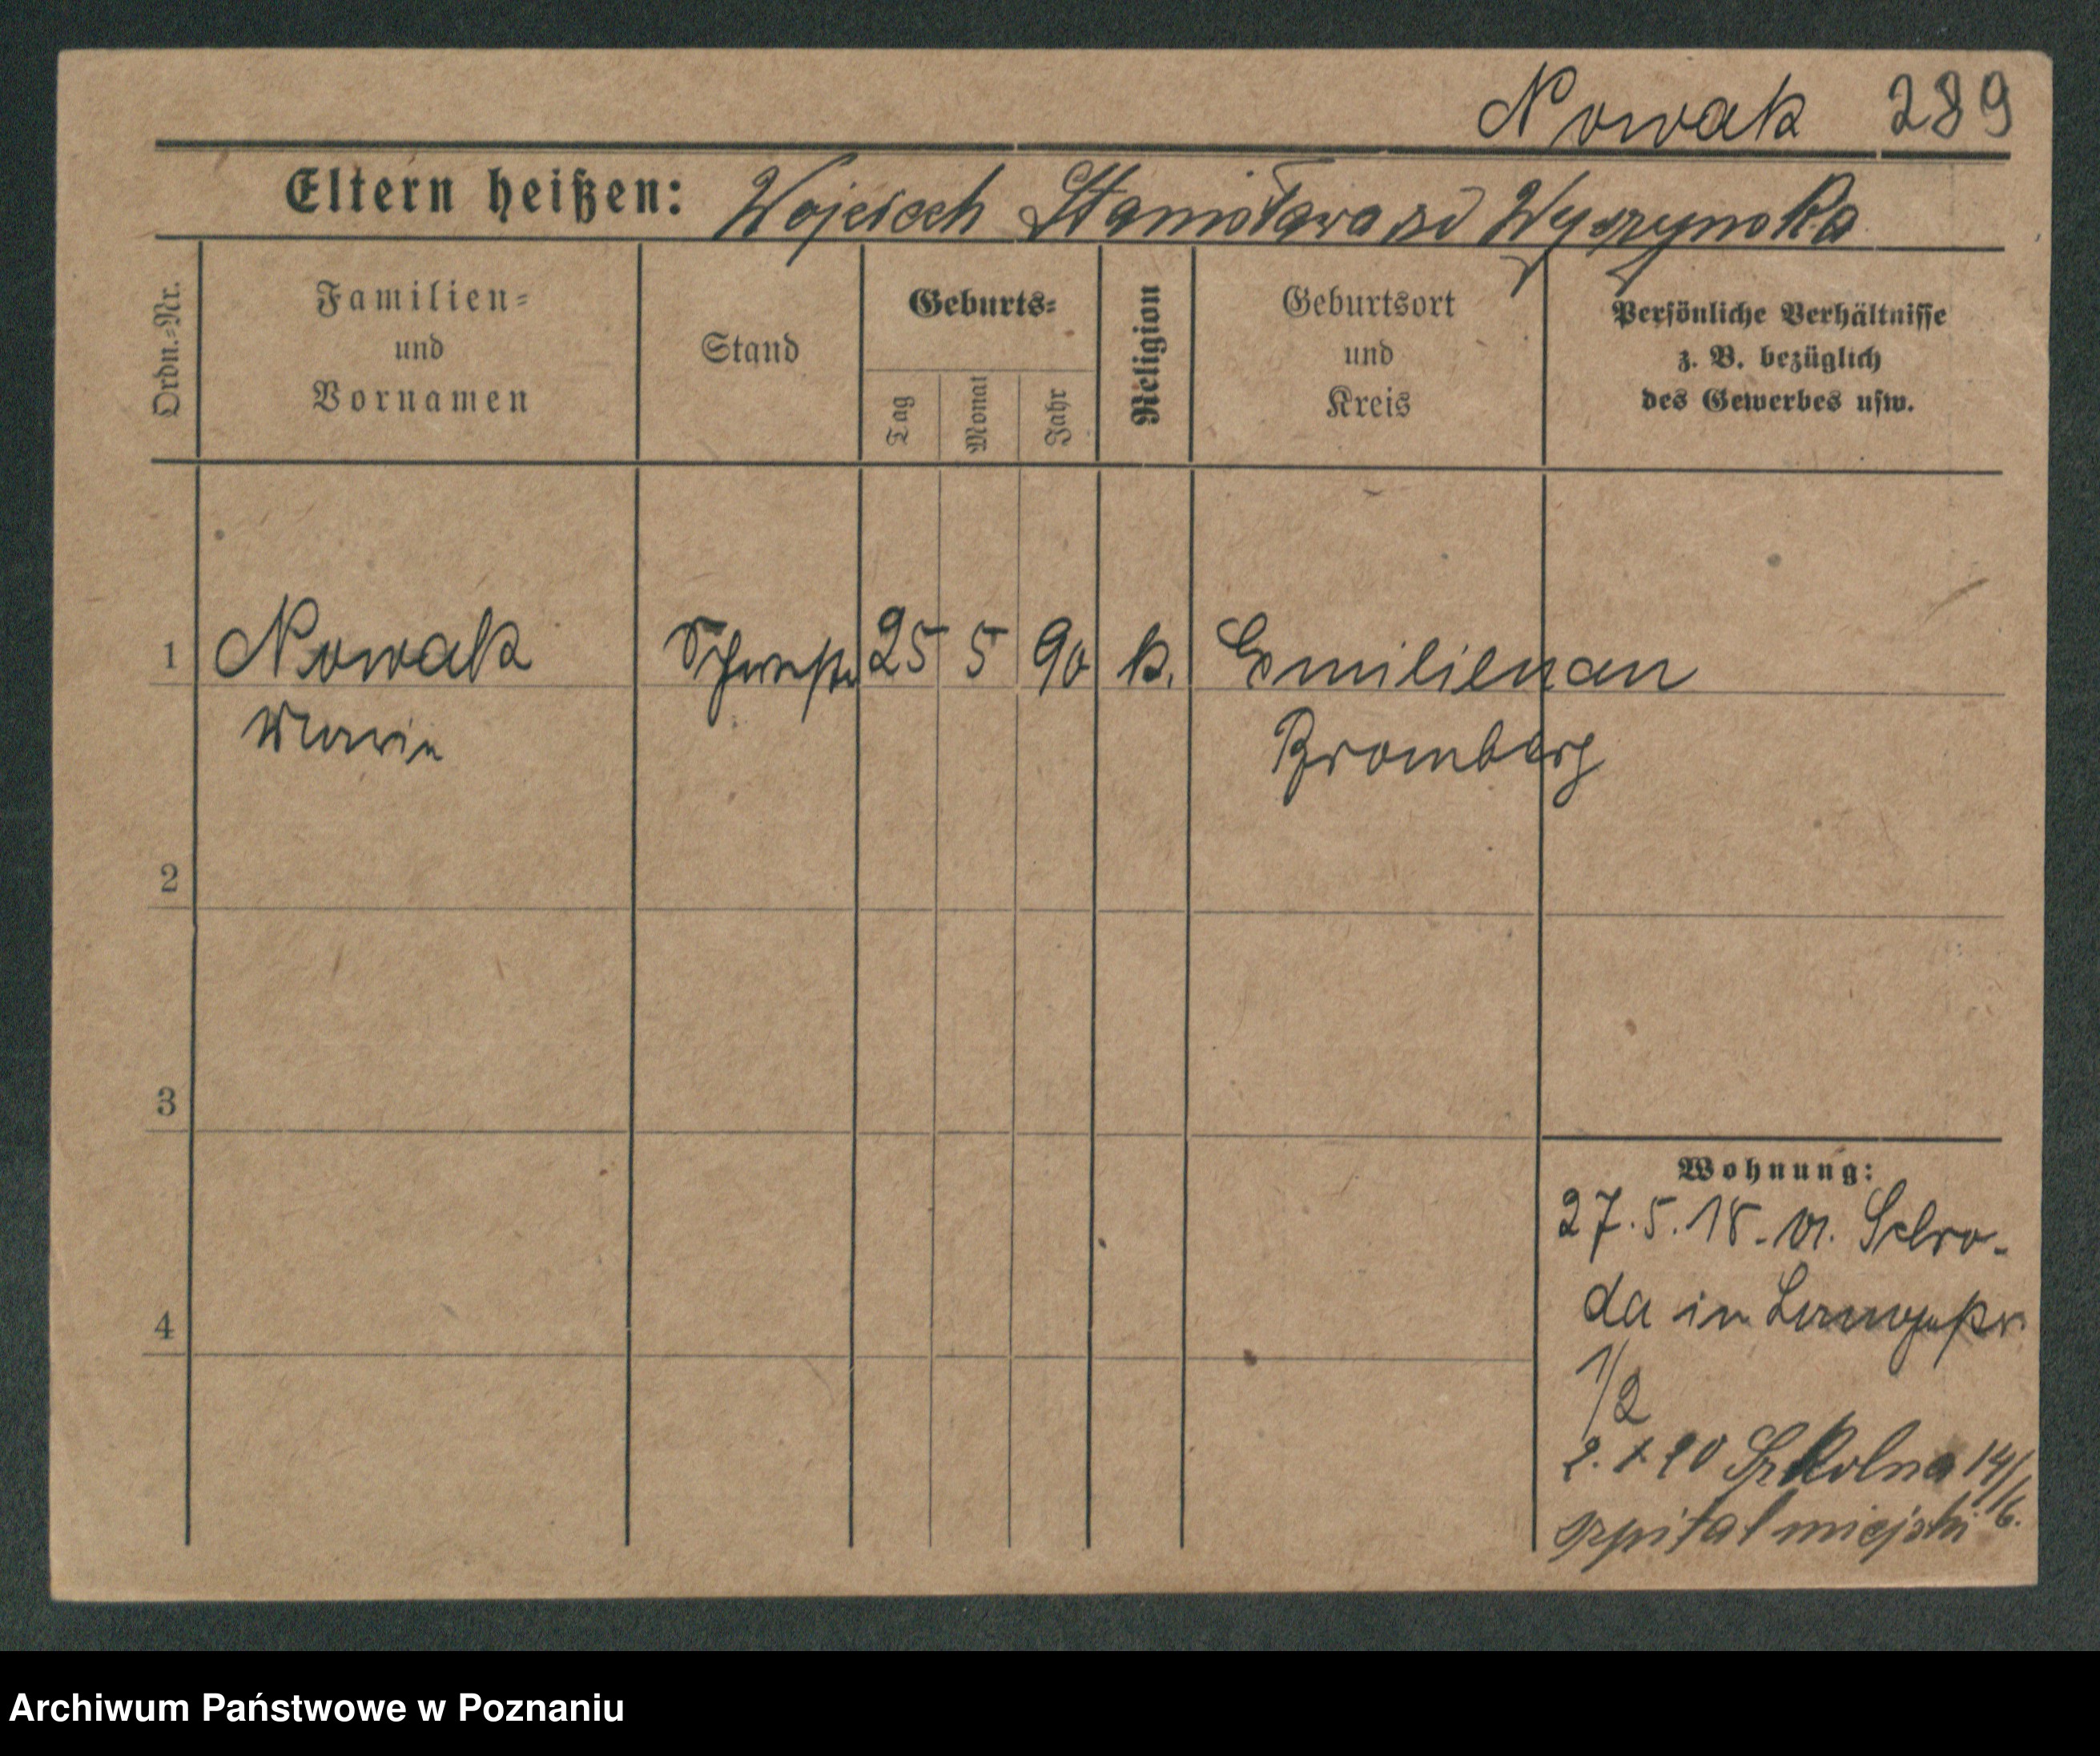 Nowak 289
Eltern heißen: Wojciech Stanisława zd Wyszynska
Ordn.-Nr.
Familien-
und
Vornamen
Stand
Geburts-
Tag
Monat
Jahr
Religion
Geburtsort
und
Kreis
Persönliche Verhältnisse
z. B. bezüglich
des Gewerbes usw.
1 Nowak 25 5 90 k. Emilienau
Marie Bromberg
2
3
4
Wohnung:
27.5.18. v. Schro-
da in
1/2
2. X 20 Szkolna 14/16.
szpital miejski
Archiwum Państwowe w Poznaniu